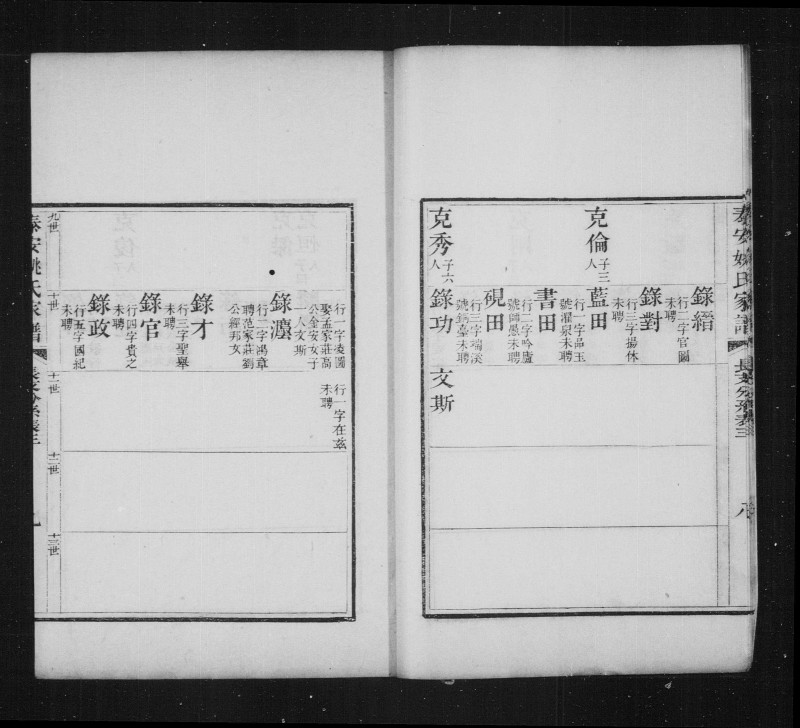 泰安姚氏家譜
長支分系表三
八
錄縉
行二字官圖
未聘
錄對
行三字揚休
未聘
克倫
子三
人
藍田
行一字品玉
號濯泉未聘
書田
行二字吟廬
號圃愚未聘
硯田
行三字端溪
號銹臺未聘
克秀
子六
人
錄功
文斯
行一字凌閣
娶孟家莊高
公奎安女子
一人文斯
行一字在茲
未聘
錄灋
行二字鴻章
聘范家莊劉
公經邦女
錄才
行三字聖舉
未聘
錄官
行四字貴之
未聘
錄政
行五字國紀
未聘
九世
十世
十一世
十二世
十三世
泰安姚氏家譜
長支分系表三
九